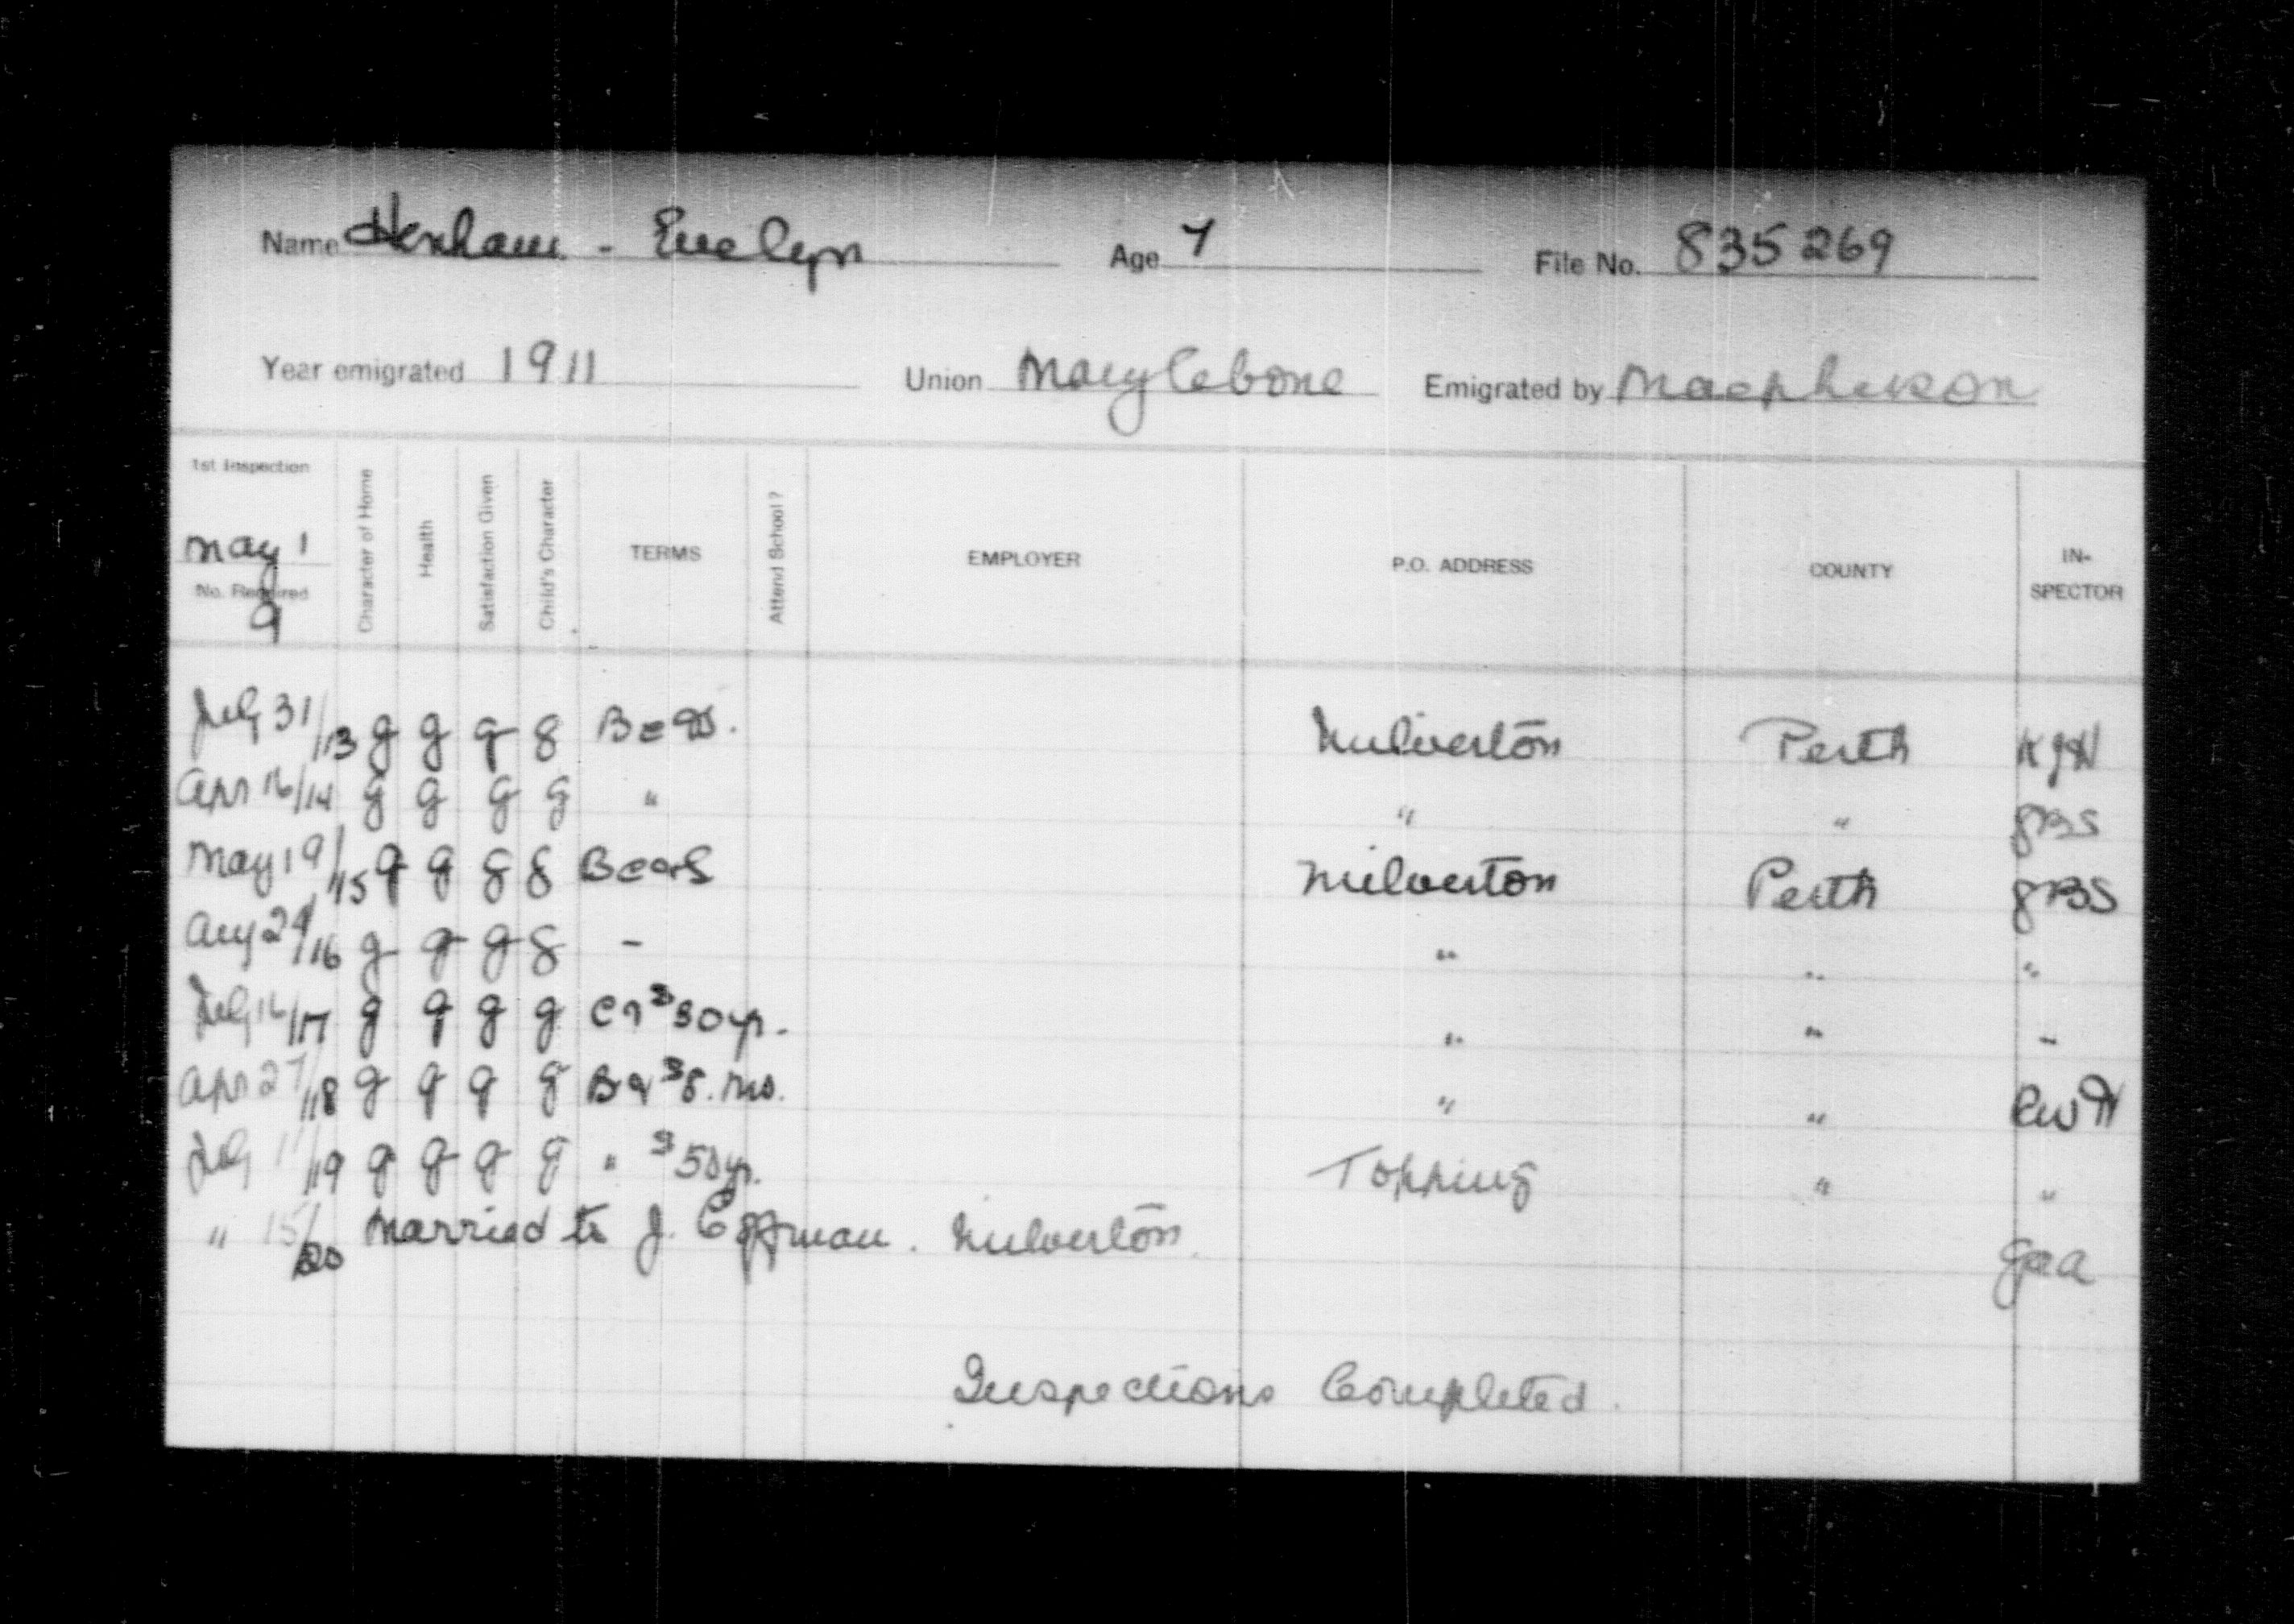 Name Hexham - Evelyn Age 7 File No. 835269
Year emigrated 1911 Union Marylebone Emigrated by Macpherson
1st Inspection May 1 No. Required 9 Character of Home Health Satisfaction Given Child's Character TERMS Attend School? EMPLOYER P.O. ADDRESS COUNTY IN-SPECTOR
July 31/13 g g g g Milverton Perth
Apr 16/14 g g g g " " " GBS
May 19/15 g g g g Milverton Perth GBS
Aug 29/16 g g g g - " " "
July 16/17 g g g g " " "
Apr 27/18 g g g g " "
July 11/19 g g g g " Topping " "
" 15/20 Married to J. Milverton
Inspections Completed.